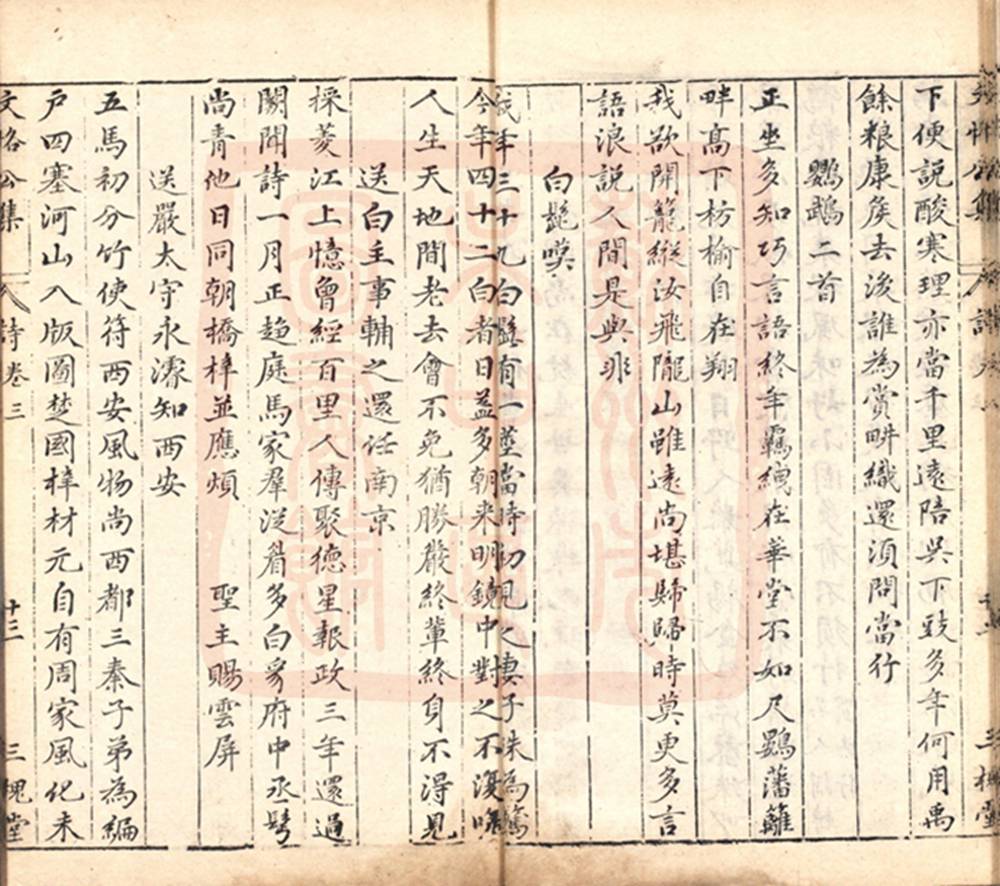 下便説酸寒理亦當千里遠陪吳下豉多年何用禹
餘粮康侯去後誰為賞耕織還須問當行
鸚鵡二首
正坐多知巧言語終年羈紲在華堂不如尺鷃藩籬
畔高下枋榆自在翔
我欲開籠縱汝飛隴山雖遠尚堪歸歸時莫更多言
語浪説人間是與非
白髭嘆
我年三十九白髭有一莖當時初見之妻子未為驚
今年四十二白者日益多朝來明鏡中對之不復嗟
人生天地間老去會不免猶勝嚴終輩終身不得見
送白主事輔之還任南京
採菱江上憶曾經百里人傳聚德星報政三年還過
闕聞詩一月正趨庭馬家羣從眉多白豸府中丞鬢
尚青他日同朝橋梓並應煩 聖主賜雲屏
送嚴太守永濬知西安
五馬初分竹使符西安風物尚西都三秦子弟為編
户四塞河山入版圖楚國梓材元自有周家風化未
文恪公集 詩卷三 十三 三槐堂